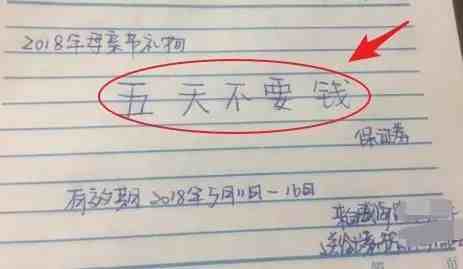 2018年母亲节礼物
五天不要钱
保证券
有效期 2018年5月11日-16日
第 页